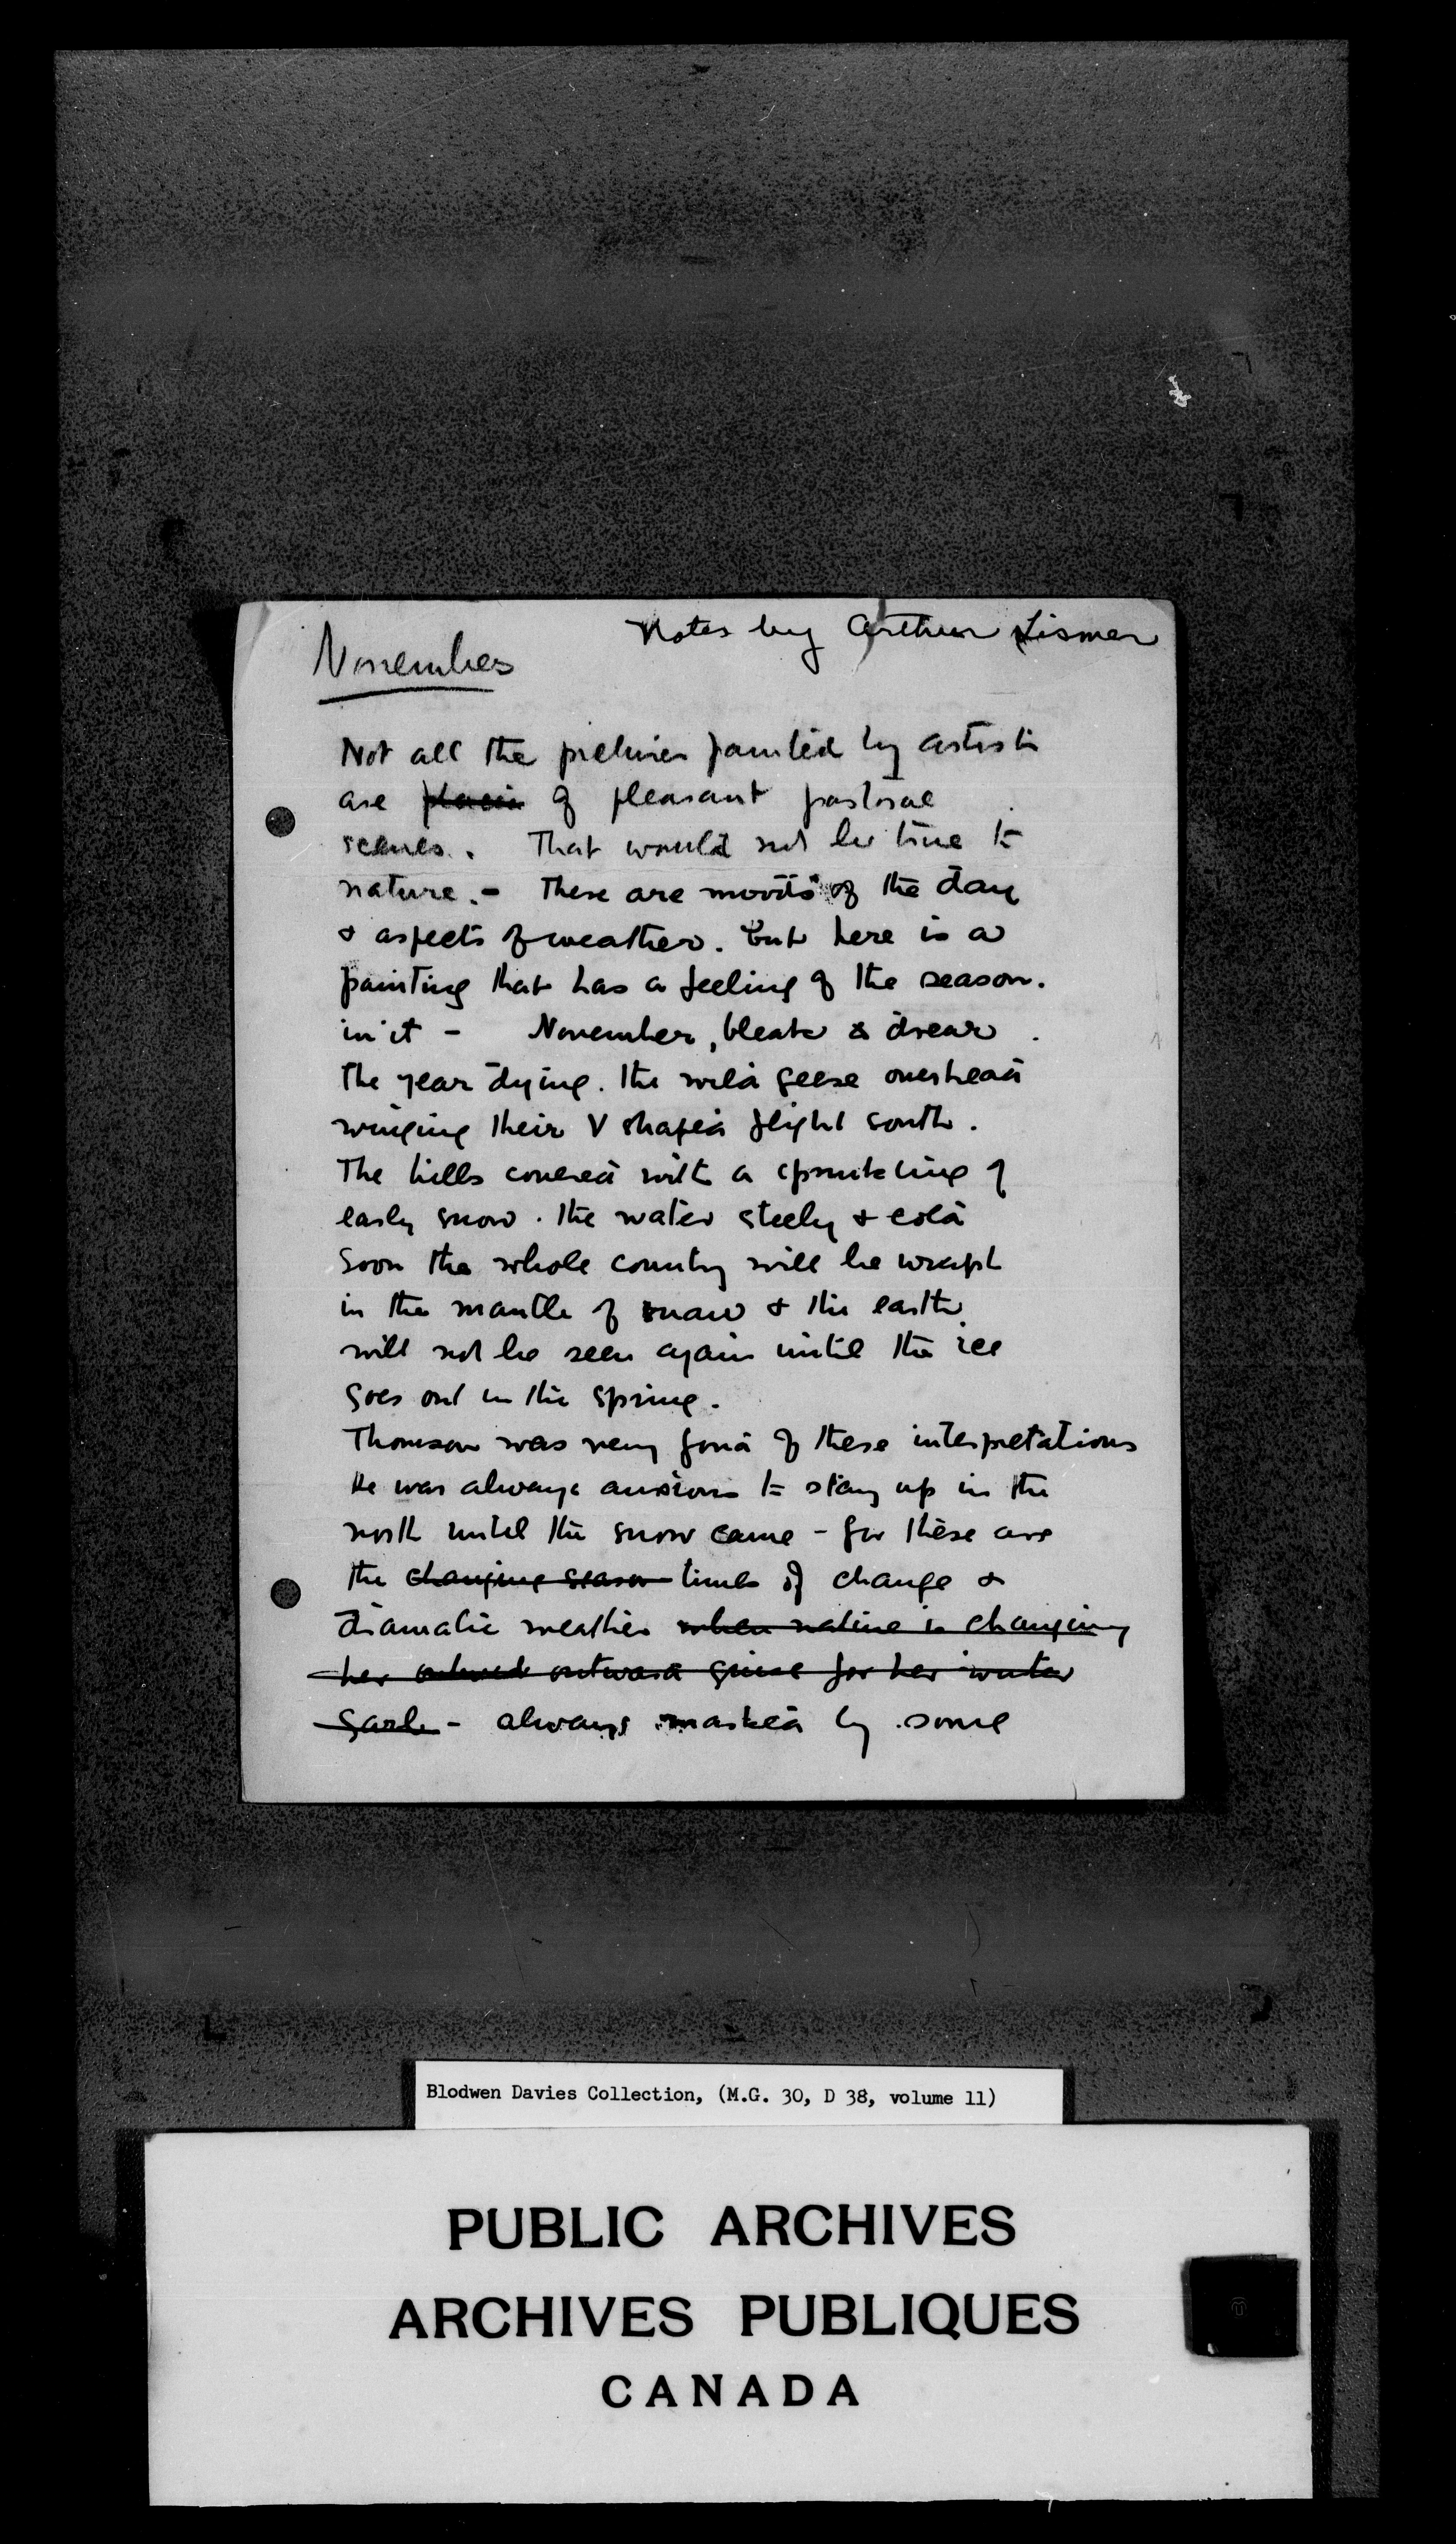 Notes by Arthur Lismer
November
Not all the pictures painted by artists
are of pleasant pastoral
scenes. That would not be true to
nature. - These are moods of the day
& aspects of weather. But here is a
painting that has a feeling of the season.
in it - November, bleak & drear.
The year dying. The wild geese overhead
winging their V shaped flight south.
The hills covered with a sprinkling of
early snow. The water steely & cold
Soon the whole country will be wrapt
in the mantle of snow & the earth
will not be seen again until the ice
goes out in the spring.
Thomson was very fond of these interpretations
He was always anxious to stay up in the
north until the snow came - for these are
the changing season times of change &
dramatic weather when nature is changing
her outward guise for her winter
garb - always marked by some
Blodwen Davies Collection, (M.G. 30, D 38, volume 11)
PUBLIC ARCHIVES
ARCHIVES PUBLIQUES
CANADA